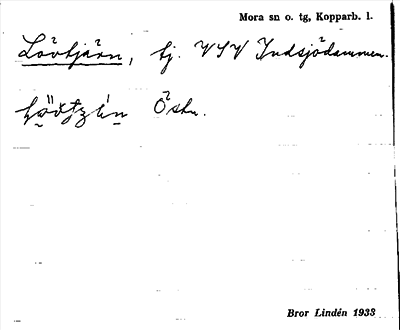 Mora sn o. tg, Kopparb. l.
Lövtjärn, tj. VSV Indsjödammen.
Östn.
Bror Lindén 1933